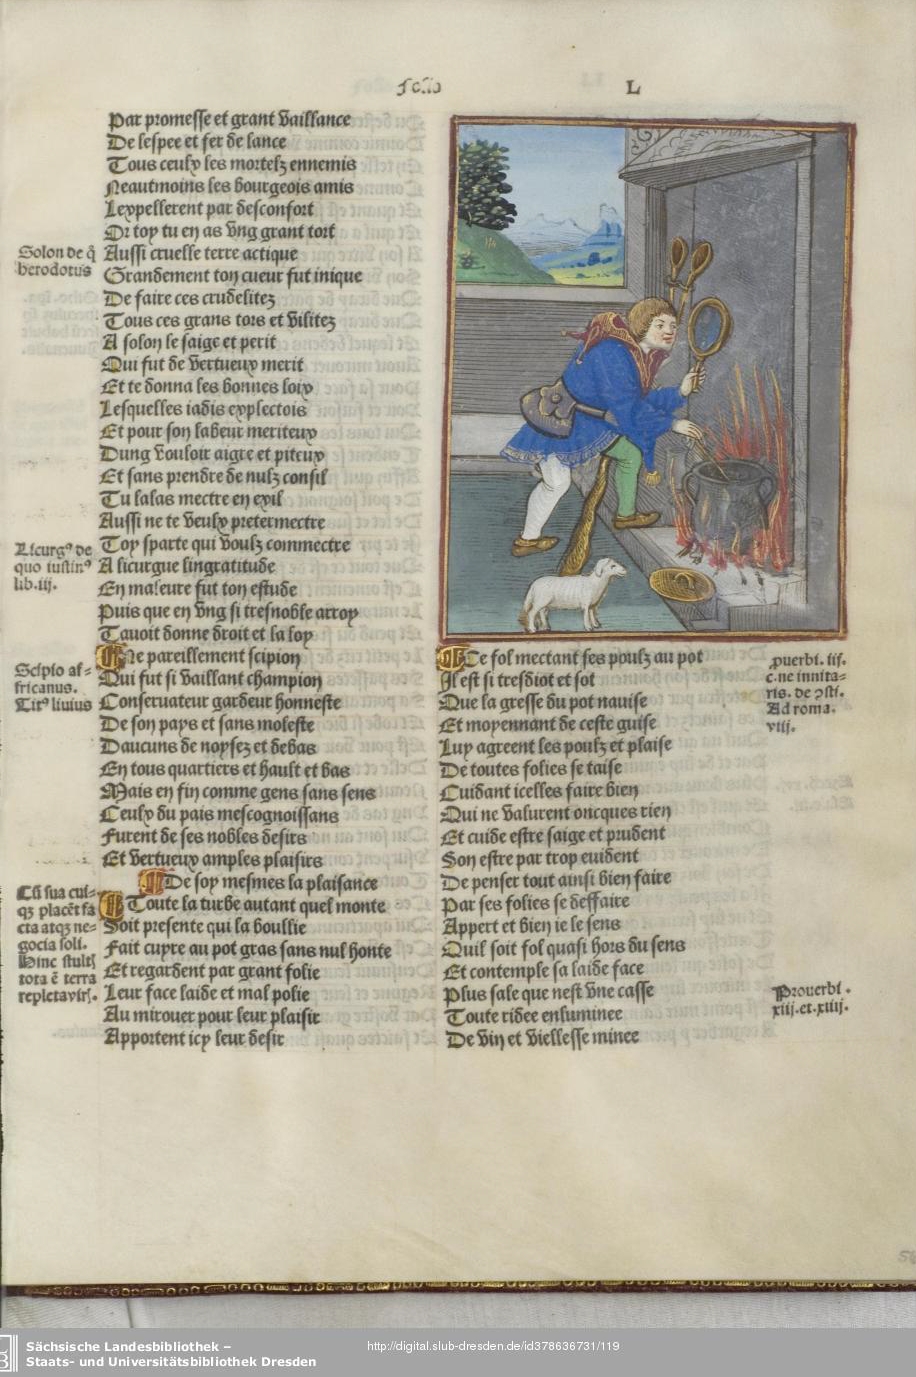 folio L
Par promesse et grant vaillance
De lespee et fer de lance
Tous ceulx les mortelz ennemis
Neautmoins les bourgeois amis
Lexpellerent par desconfort
Or toy tu en as vng grant tort
Solon de q̃
herodotus
Aussi cruelle terre actique
Grandement ton cueur fut inique
De faire ces crudelitez
Tous ces grans tors et vilitez
A solon le saige et perit
Qui fut de vertueux merit
Et te donna les bonnes loix
Lesquelles iadis explectois
Et pour son labeur meriteux
Dung vouloir aigre et piteux
Et sans prendre de nulz consil
Tu lalas mectre en exil
Aussi ne te veulx pretermectre
Licurgꝰ de
quo iustinꝰ
lib.iij.
Toy sparte qui voulz commectre
A licurgue lingratitude
En maleure fut ton estude
Puis que en vng si tresnoble arroy
Tauoit donne droit et la loy
Scipio af-
fricanus.
Titꝰ liuius
Ne pareillement scipion
Qui fut si vaillant champion
Conseruateur gardeur honneste
De son pays et sans moleste
Daucuns de noysez et debas
En tous quartiers et hault et bas
Mais en fin comme gens sans sens
Ceulx du pais mescognoissans
Furent de ses nobles desirs
Et vertueux amples plaisirs
De soy mesmes la plaisance
Cũ sua cui-
qꝫ placẽt fa
cta atqꝫ ne-
gocia soli.
Hinc stultꝭ
tota ẽ terra
repleta virꝭ.
Toute la turbe autant quel monte
Soit presente qui la boullie
Fait cuyre au pot gras sans nul honte
Et regardent par grant folie
Leur face laide et mal polie
Au mirouer pour leur plaisir
Apportent icy leur desir
Ce fol mectant ses poulz au pot
Il est si tresdiot et sot
Que la gresse du pot nauise
Et moyennant de ceste guise
Luy agreent les poulz et plaise
De toutes folies se taise
Cuidant icelles faire bien
Qui ne valurent oncques rien
Et cuide estre saige et prudent
Son estre par trop euident
De penser tout ainsi bien faire
Par ses folies se deffaire
Appert et bien ie le sens
Quil soit fol quasi hors du sens
Et contemple sa laide face
Plus sale que nest vne casse
Toute ridee enluminee
De vin et viellesse minee
puerbi. iij.
c. ne innita-
ris. de ꝯsti.
Ad roma.
viij.
Prouerbi.
xiij.et.xiiij.
Sächsische Landesbibliothek –
Staats- und Universitätsbibliothek Dresden
http://digital.slub-dresden.de/id378636731/119